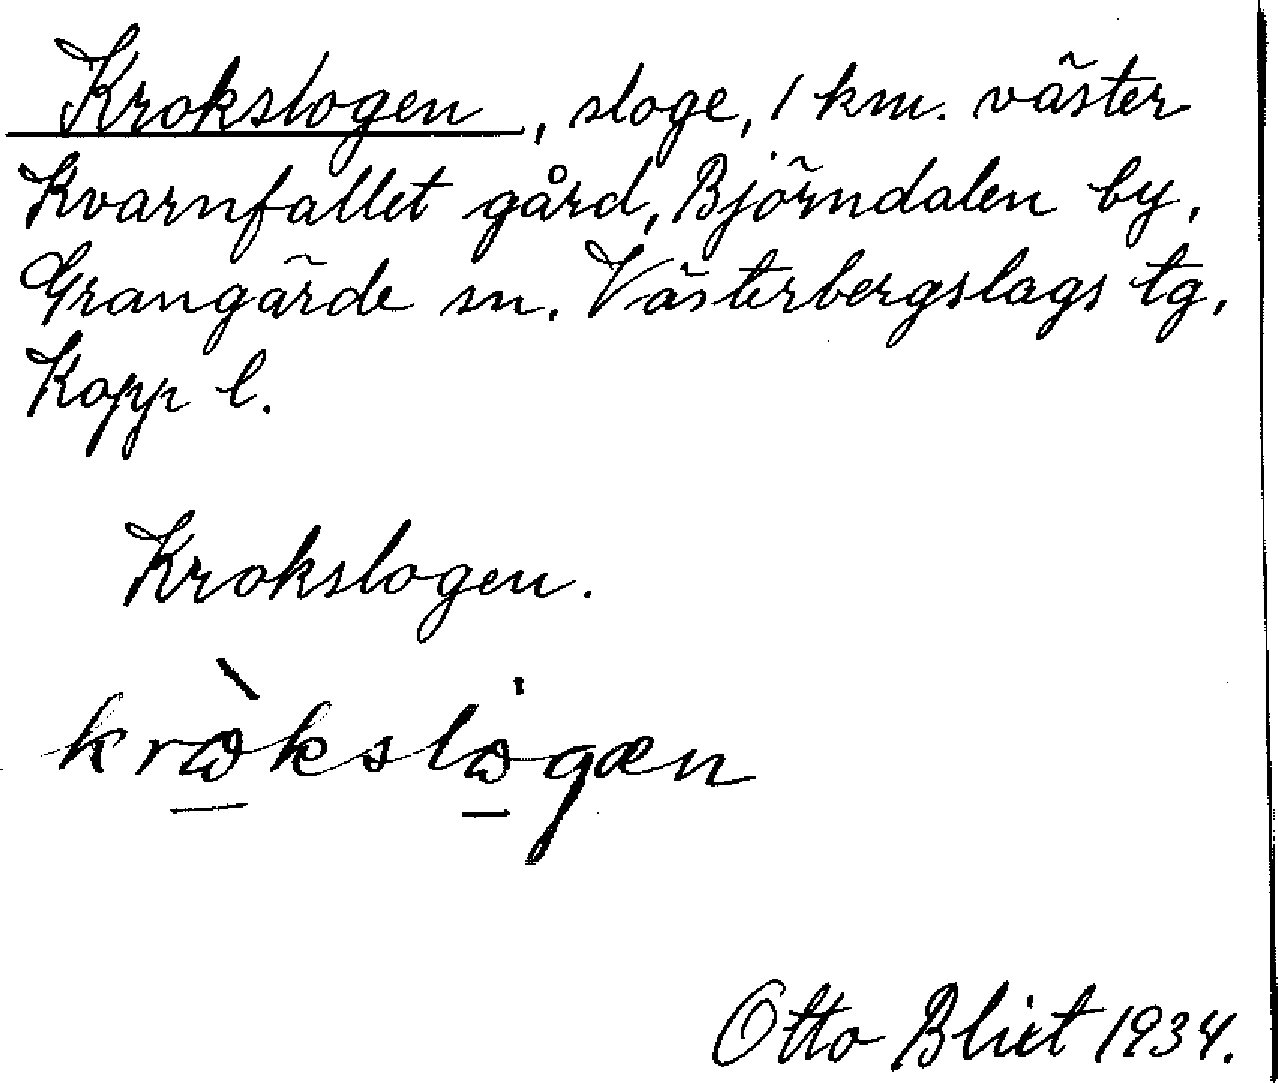 Krokslogen, sloge, 1 km. väster
Kvarnfallet gård, Björndalen by,
Grangärde sn. Västerbergslags tg,
Kopp l.
Krokslogen.
krɷ̀kslɷgæn
Otto Blixt 1934.